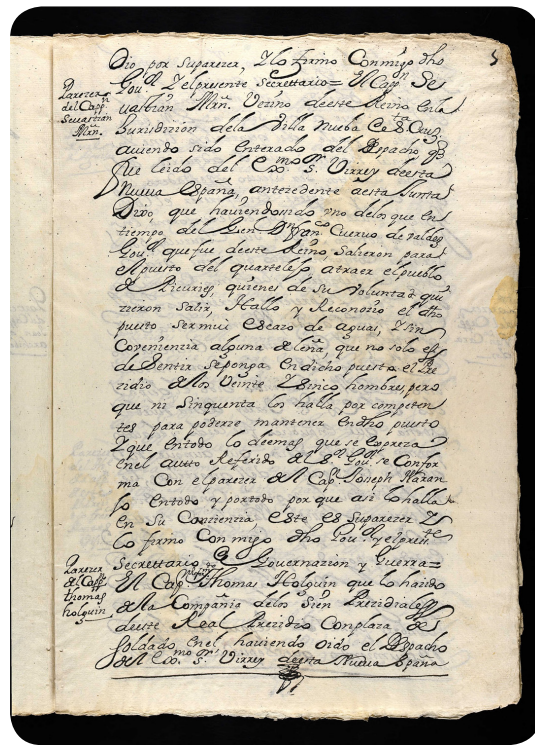 5
Dio por suparezer, Y lo firmo Conmigo dho
Gou.or Y el presente Secrettario = El Cap.n Se
uastian Mrn. Vezino deeste Reino en la
Jurisdizion dela Villa Nueba de S.ta Cruz,
auiendo sido Enterado del Despacho q̃
fue leido del Exmo. S.r Virrey deesta
Nueua España, antezedente a esta Junta
Dixo, que haviendo sido vno delos que en
tiempo del Gen.l Dn. fran.co Cuervo de Valdes
Gou.or que fue deeste Reino, Salieron para
el puesto del quartelejo atraer el pueblo
de Picuries, quienes de su Voluntad qui
zieron Salir, Hallo y Reconozio el dho
puesto ser mui escazo de aguas, Y sin
Coveniencia alguna de leña, que no solo es
de Sentir Seponga en dicho puesto el Pre
zidio de los Veinte Y Sinco hombres, pero
que ni Sinquenta los halla por competen
tes para poderse mantener en dho puesto
Y que entodo lo deemas que se expreza
en el autto Referido del S.r Gou.or se Confor
ma Con el parezer del Cap.n Joseph Naran
Jo entodo y portodo por que asi lo halla
en Su Conzienzia este es Suparezer Y
lo firmo Conmigo dho Gou.or y el pres.te
Secrettario de Governazion y Guerra =
El Cap.n Thomas Holguin que lo ha sido
de la Compañia delos Sien Prezidiales
deeste Real Prezidio Con plaza de
Soldado en el haviendo oido el Despacho
del Exmo. S.r Virrey deesta Nueua España
Parezer
del Cap.n
Seuastian
Mrn.
Parezer
del Cap.n
thomas
holguin